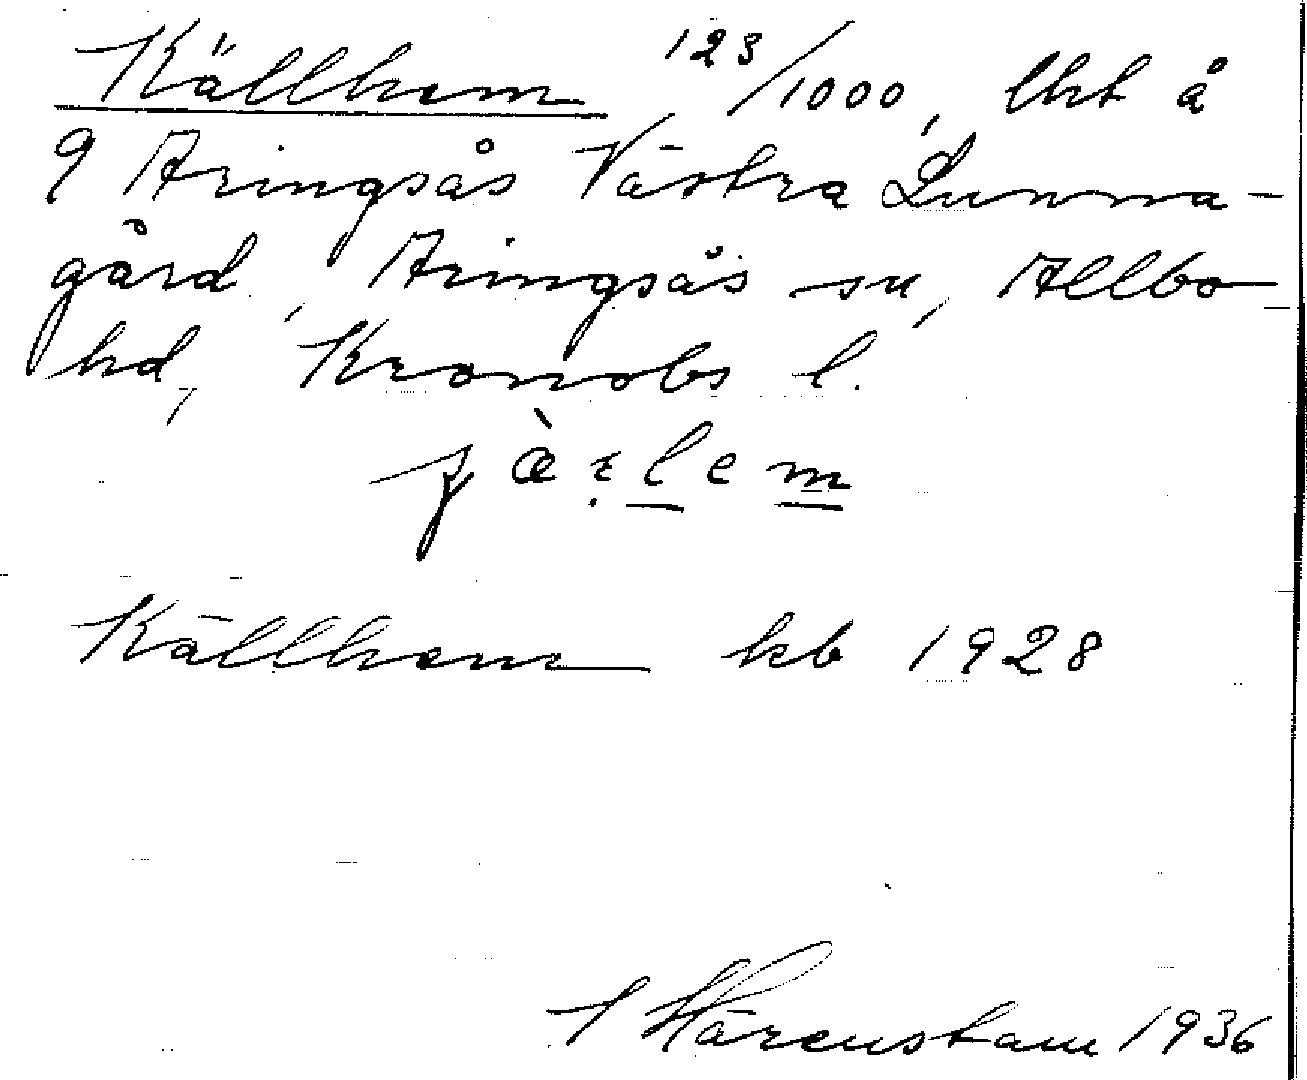 Källhem 123/1000, lht å
9 Aringsås Västra Lunna-
gård, Aringsås sn, Allbo
hd, Kronobs l.
Källhem kb 1928
Härenstam 1936